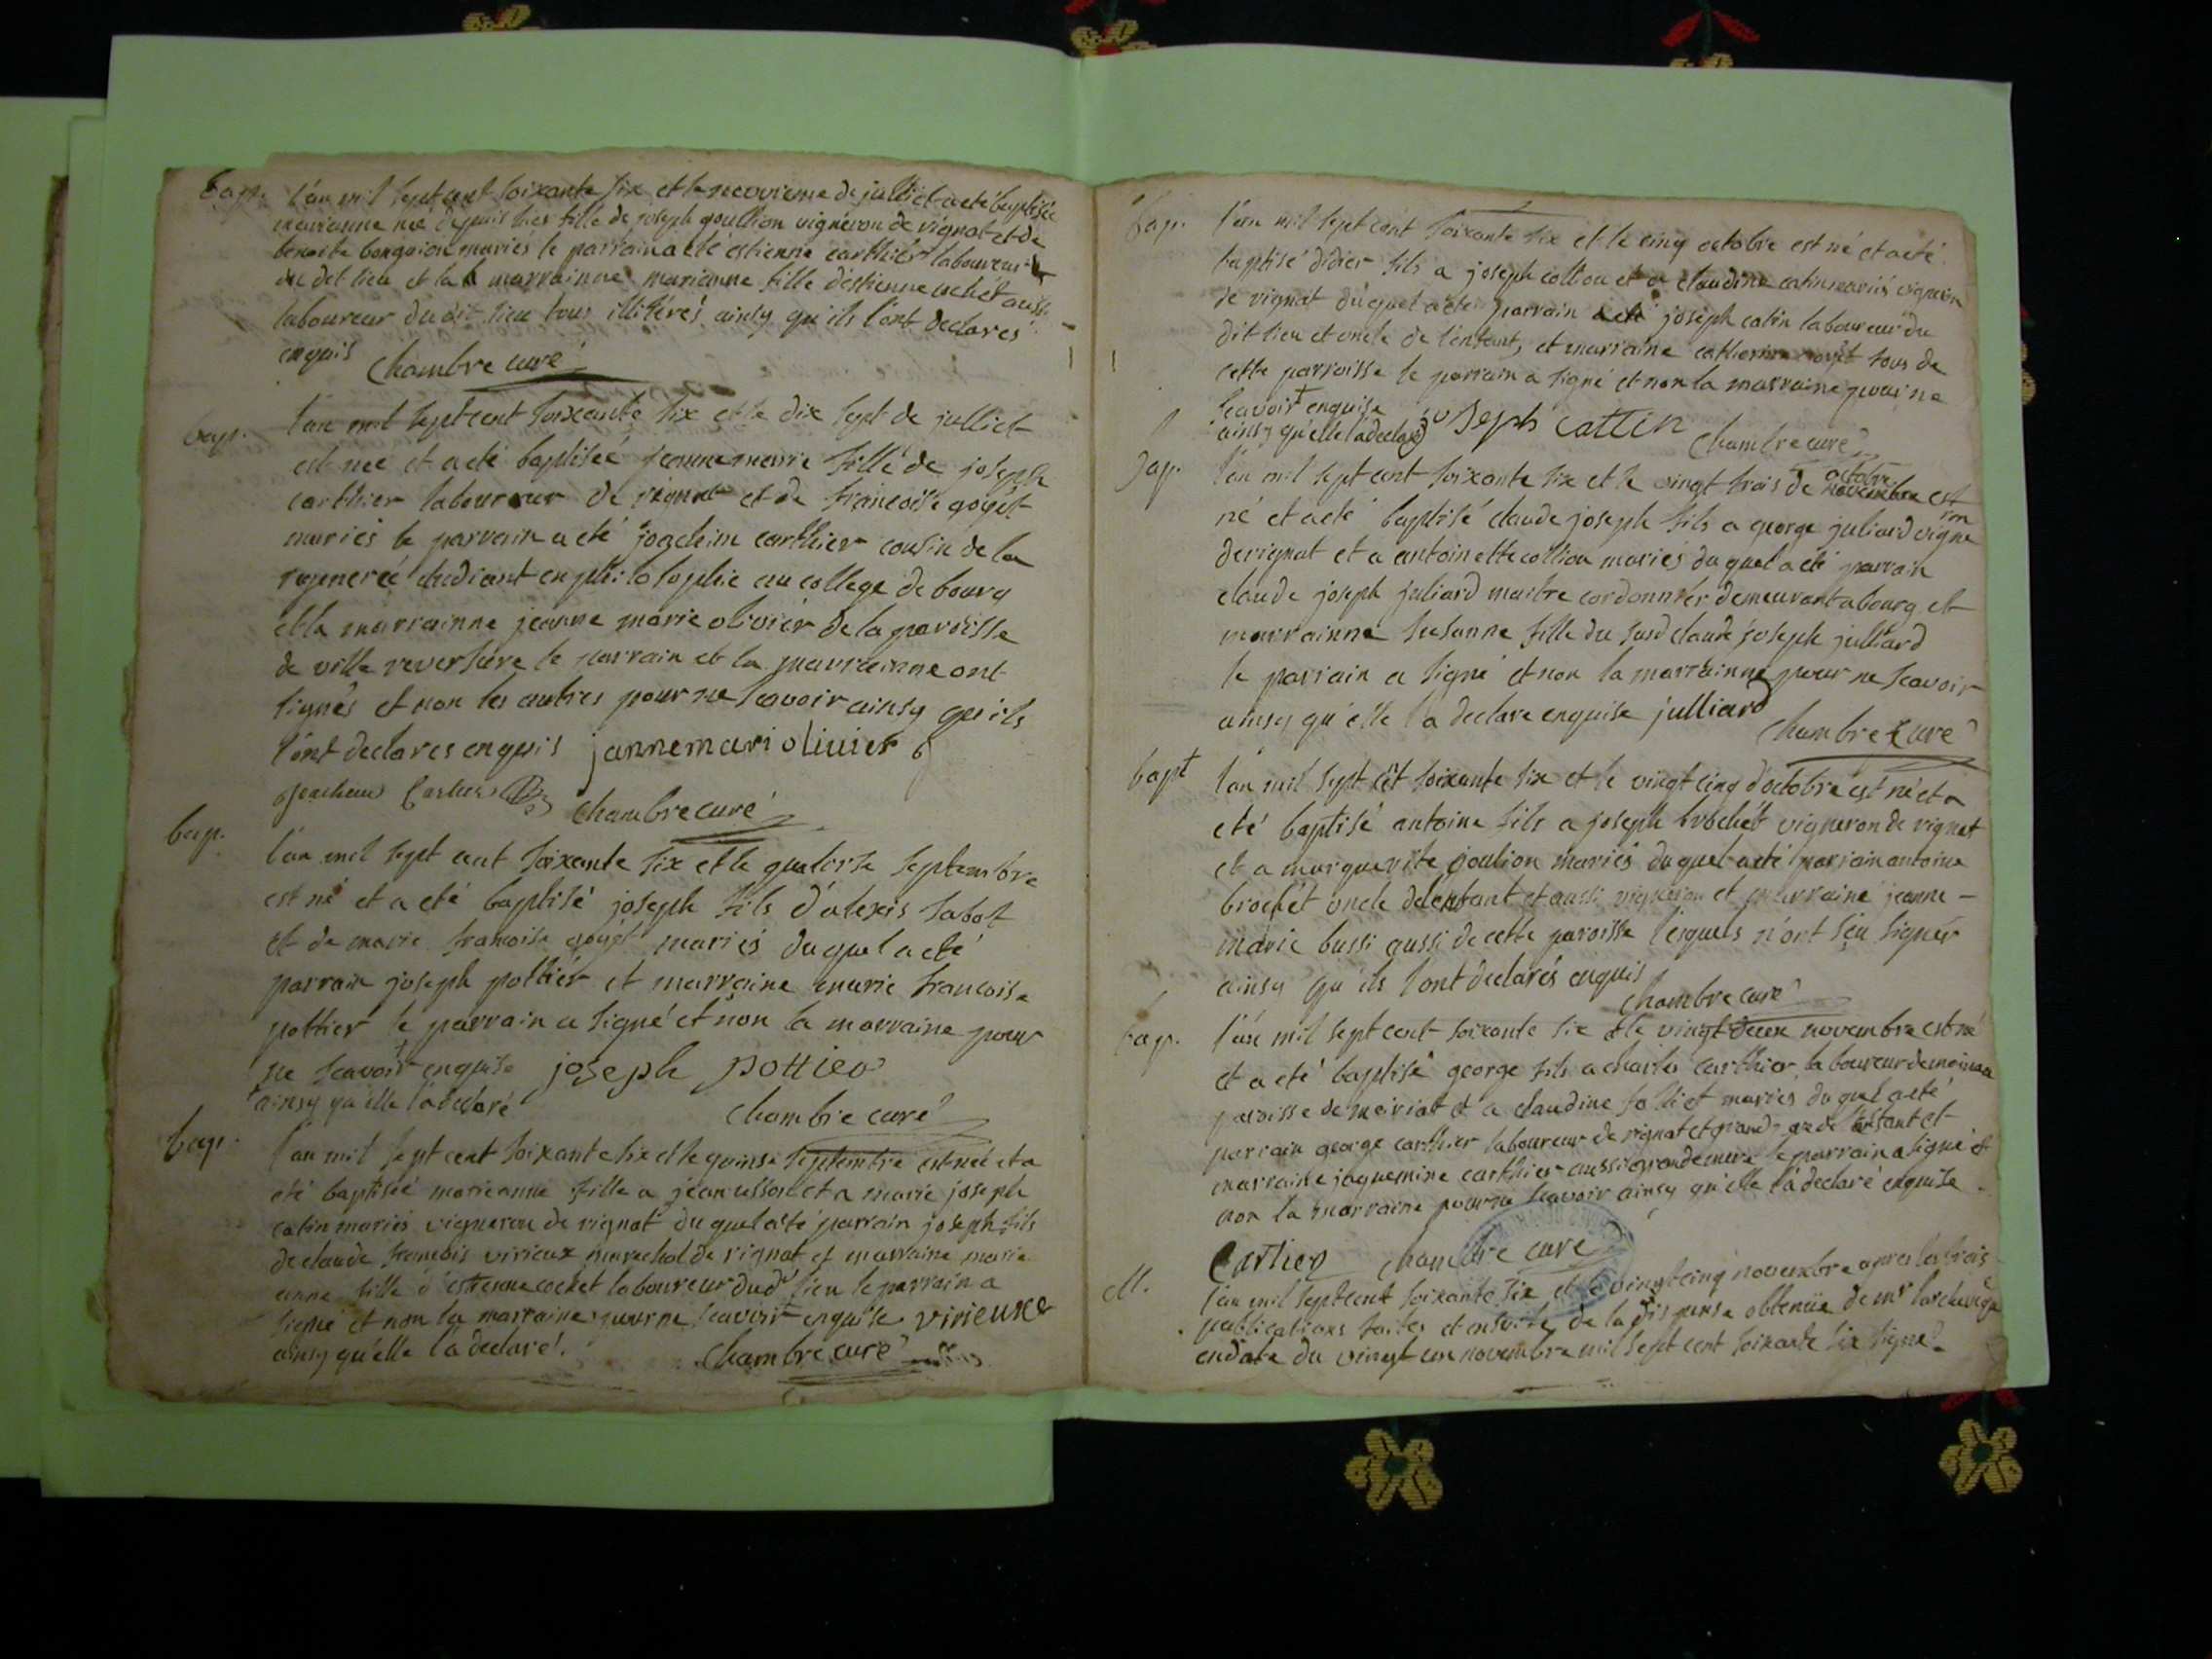 bap. l'an mil sept cent soixante six et le neuvieme de julliet a eté baptisée
marianne née depuis hier fille de joseph goullion vigneron de rignat et de
benoite bonguion mariés le parrain a eté estienne carthier laboureur
du dit lieu et la marrainne marianne fille d'estienne cochet aussi
laboureur dudit lieu tous illitérés ainsy qu'ils l'ont declares
enquis Chambre curé
bap. l'an mil sept cent soixante six et le dix sept de julliet
est née et a eté baptisée jeanne marie fille de joseph
carthier laboureur de rignat et de francoise goyét
mariés le parrain a eté joachim carthier cousin de la
regenereé etudiant en philosophie au college de bourg
et la marrainne jeanne marie olivier de la paroisse
de ville reversure le parrain et la marrainne ont
signés et non les autres pour ne scavoir ainsy qu'ils
l'ont declares enquis jannemari oliuier
joachim Cartier Chambre curé
bap. l'an mil sept cent soixante six et le quatorse septembre
est né et a eté baptisé joseph fils d'alexis sabot
et de marie francoise goyét mariés du quel a eté
parrain joseph pottiér et marraine marie francoise
pottiér le parrain a signé et non la marraine pour
ne scavoir + enquise joseph pottier
+ ainsy qu'elle l'a declaré Chambre curé
bap. l'an mil sept cent soixante six et le quinse septembre est née et a
eté baptisée marianne fille a jean usson et a marie joseph
catin mariés vigneron de rignat du quel a eté parrain joseph fils
de claude francois virieux marechal de rignat et marraine marie
anne fille d'estienne cochet laboureur dud lieu le parrain a
signé et non la marraine pour ne scavoir + enquise virieux
ainsy qu'elle l'a declaré. Chambre curé
bap. l'an mil sept cent soixante six et le cinq octobre est né et a eté
baptisé didier fils a joseph collou et a claudine catin mariés vigneron
de rignat du quel a eté parrain joseph catin laboureur du
dit lieu et oncle de l'enfant, et marraine catherine tous de
cette parroisse le parrain a signé et non la marraine pour ne
scavoir + enquise
ainsy qu'elle l'a declaré joseph cattin Chambre curé
bap. l'an mil sept cent soixante six et le vingt trois de novembre octobre est
né et a eté baptisé claude joseph fils a george juliard vigneron
de rignat et a antoinette collion mariés du quel a eté parrain
claude joseph juliard maitre cordonniér demeurant a bourg et
marrainne susanne fille du susd claude joseph julliard
le parrain a signé et non la marrainne pour ne scavoir
ainsy qu'elle l'a declare enquise julliard
Chambre curé
bapt l'an mil sept cēt soixante six et le vingt cinq d'octobre est né et a
eté baptisé antoine fils a joseph brochét vigneron de rignat
et a marguerite goulion mariés du quel a eté parrain antoine
brochét oncle de l'enfant et aussi vigneron et marraine jeanne -
marie bussi aussi de cette paroisse lesquels n'ont sçu signér
ainsy qu'ils l'ont declarés enquis
Chambre curé
bap. l'an mil sept cent soixante six et le vingt deux novembre est né
et a eté baptisé george fils a charles carthier laboureur de
paroisse de meiriat et a claudine mariés du quel a eté
parrain george carthier laboureur de rignat et grand de l'enfant et
marraine jaquemine carthier aussi grandemere le parrain a signé et
non la marraine pour ne scavoir ainsy qu'elle l'a declaré enquise
Cartier Chambre curé
M. l'an mil sept cent soixante six et le vingt cinq novembre apres les trois
publications faites et ensuite de la dispense obtenüe de mr l'archeveque
en date du vingt un novembre mil sept cent soixante six signé